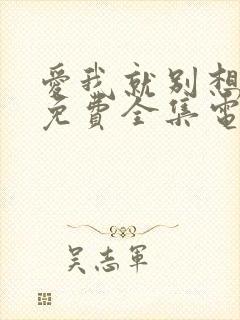 愛我就別想
免費全集電
吴志軍